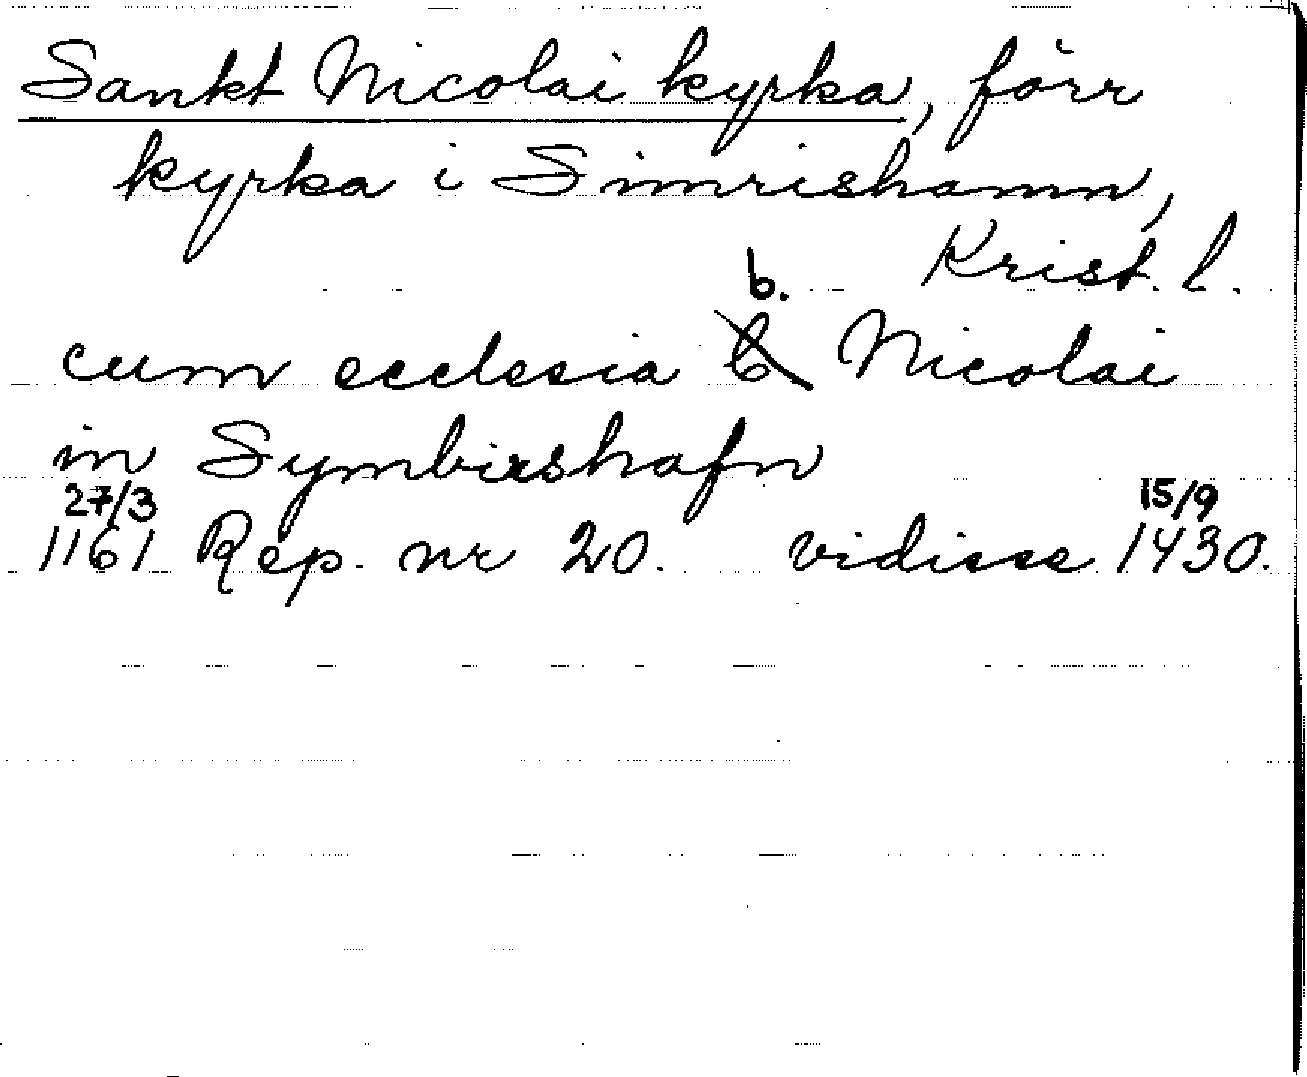 Sankt Nicolai kyrka, förr
kyrka i Simrishamn,
Krist. l.
b.
cum ecclesia b Nicolai
in Symbirshafn
27/3 15/9
1161 Rep. nr 20. vidisse 1430.